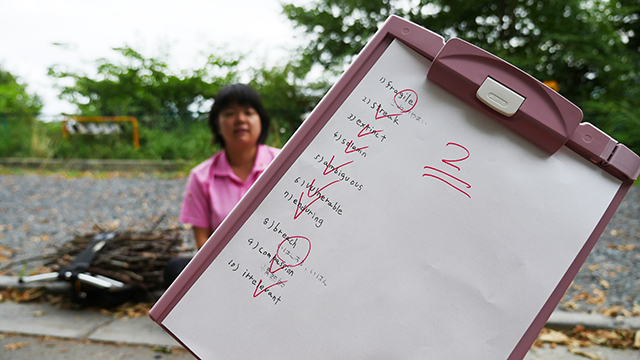 1) fragile
2) streak
3) extinct
4) solemn
5) ambiguous
6) vulnerable
7) enduring
8) breach
9) compassion
10) irrelevant
2